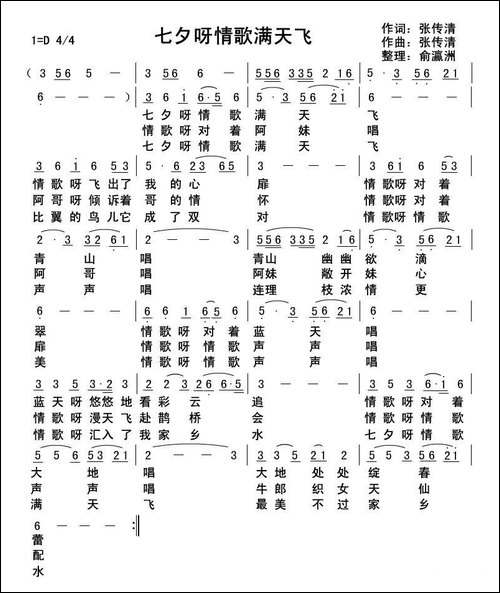 七夕呀情歌满天飞
1=D 4/4
作词：张传清
作曲：张传清
整理：俞瀛洲
( 3 56 6 - | 6 - - - | 5556 3335 2 16 | 5 · 356 21
6 - - - ) | 3 6 1 6·5 6 | 5 · 3 56 21 | 6 - - -
七夕呀情歌 满天 飞
情歌呀对着 阿妹 唱
七夕呀情歌 满天 飞
3 6 1 6 53 | 5 · 6 23 65 | 3 - - - | 3 6 1 6 5
情歌呀飞出了 我的心 扉 情歌呀对着
阿哥呀倾诉着 哥的情 怀 情歌呀对着
比翼的鸟儿它 成了双 对 情歌呀对情
2 · 3 32 61 | 2 - - 3 | 5556 3335 2 16 | 5 · 3 56 21
青山 唱 青山幽幽 欲滴
阿哥 唱 阿妹敞开 妹心
声声 唱 连理枝浓 情更
6 - - - | 3 6 1 6·5 6 | 5 · 3 56 21 | 6 - - -
翠 情歌呀对着 蓝天 唱
扉 情歌呀对着 声声 唱
美 情歌呀情歌 声声 唱
3 6 1 6 53 | 2 · 3 226 6·5 | 3 - - - | 3 5 3 6·1 6
蓝天呀悠悠地 看彩云 追 情歌呀对着
情歌呀漫天飞 赴鹊桥 会 情歌呀情歌
情歌呀汇入了 我家乡 水 七夕呀情歌
5 5 53 21 | 2 - - 3 | 556 35 2 16 | 5 · 3 56 21
大地 唱 大地处处 绽春
声声 唱 牛郎织女 天仙
满天 飞 最美不过 家乡
6 - - - :‖
蕾
配
水